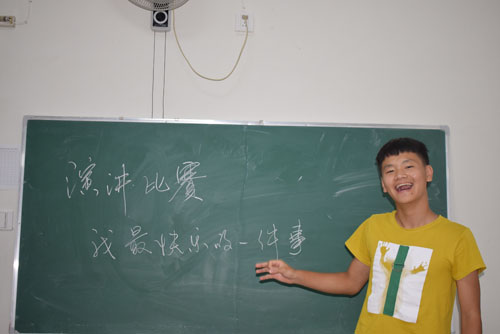 演讲比賽
我最快乐的一件事